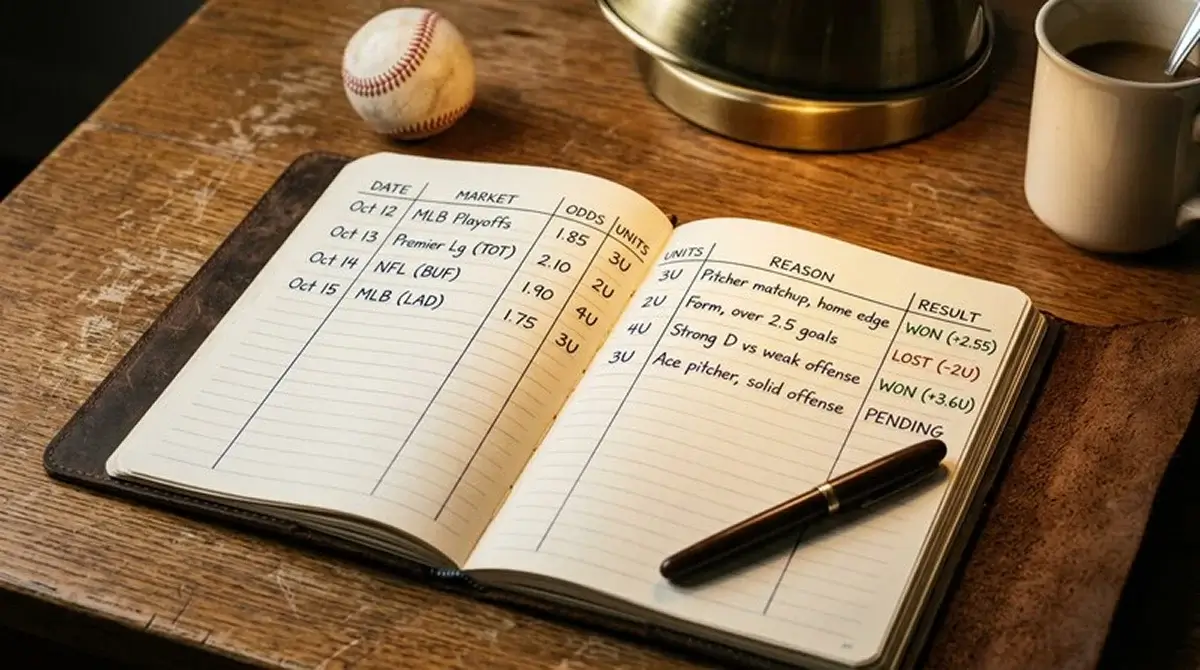 DATE MARKET ODDS UNITS
Oct 12 MLB Playoffs 1.85 3U
Oct 13 Premier Lg (TOT) 2.10 2U
Oct 14 NFL (BUF) 1.90 4U
Oct 15 MLB (LAD) 1.75 3U
UNITS REASON RESULT
3U Pitcher matchup, home edge WON (+2.55)
2U Form, over 2.5 goals LOST (-2U)
4U Strong D vs weak offense WON (+3.6U)
3U Ace pitcher, solid offense PENDING